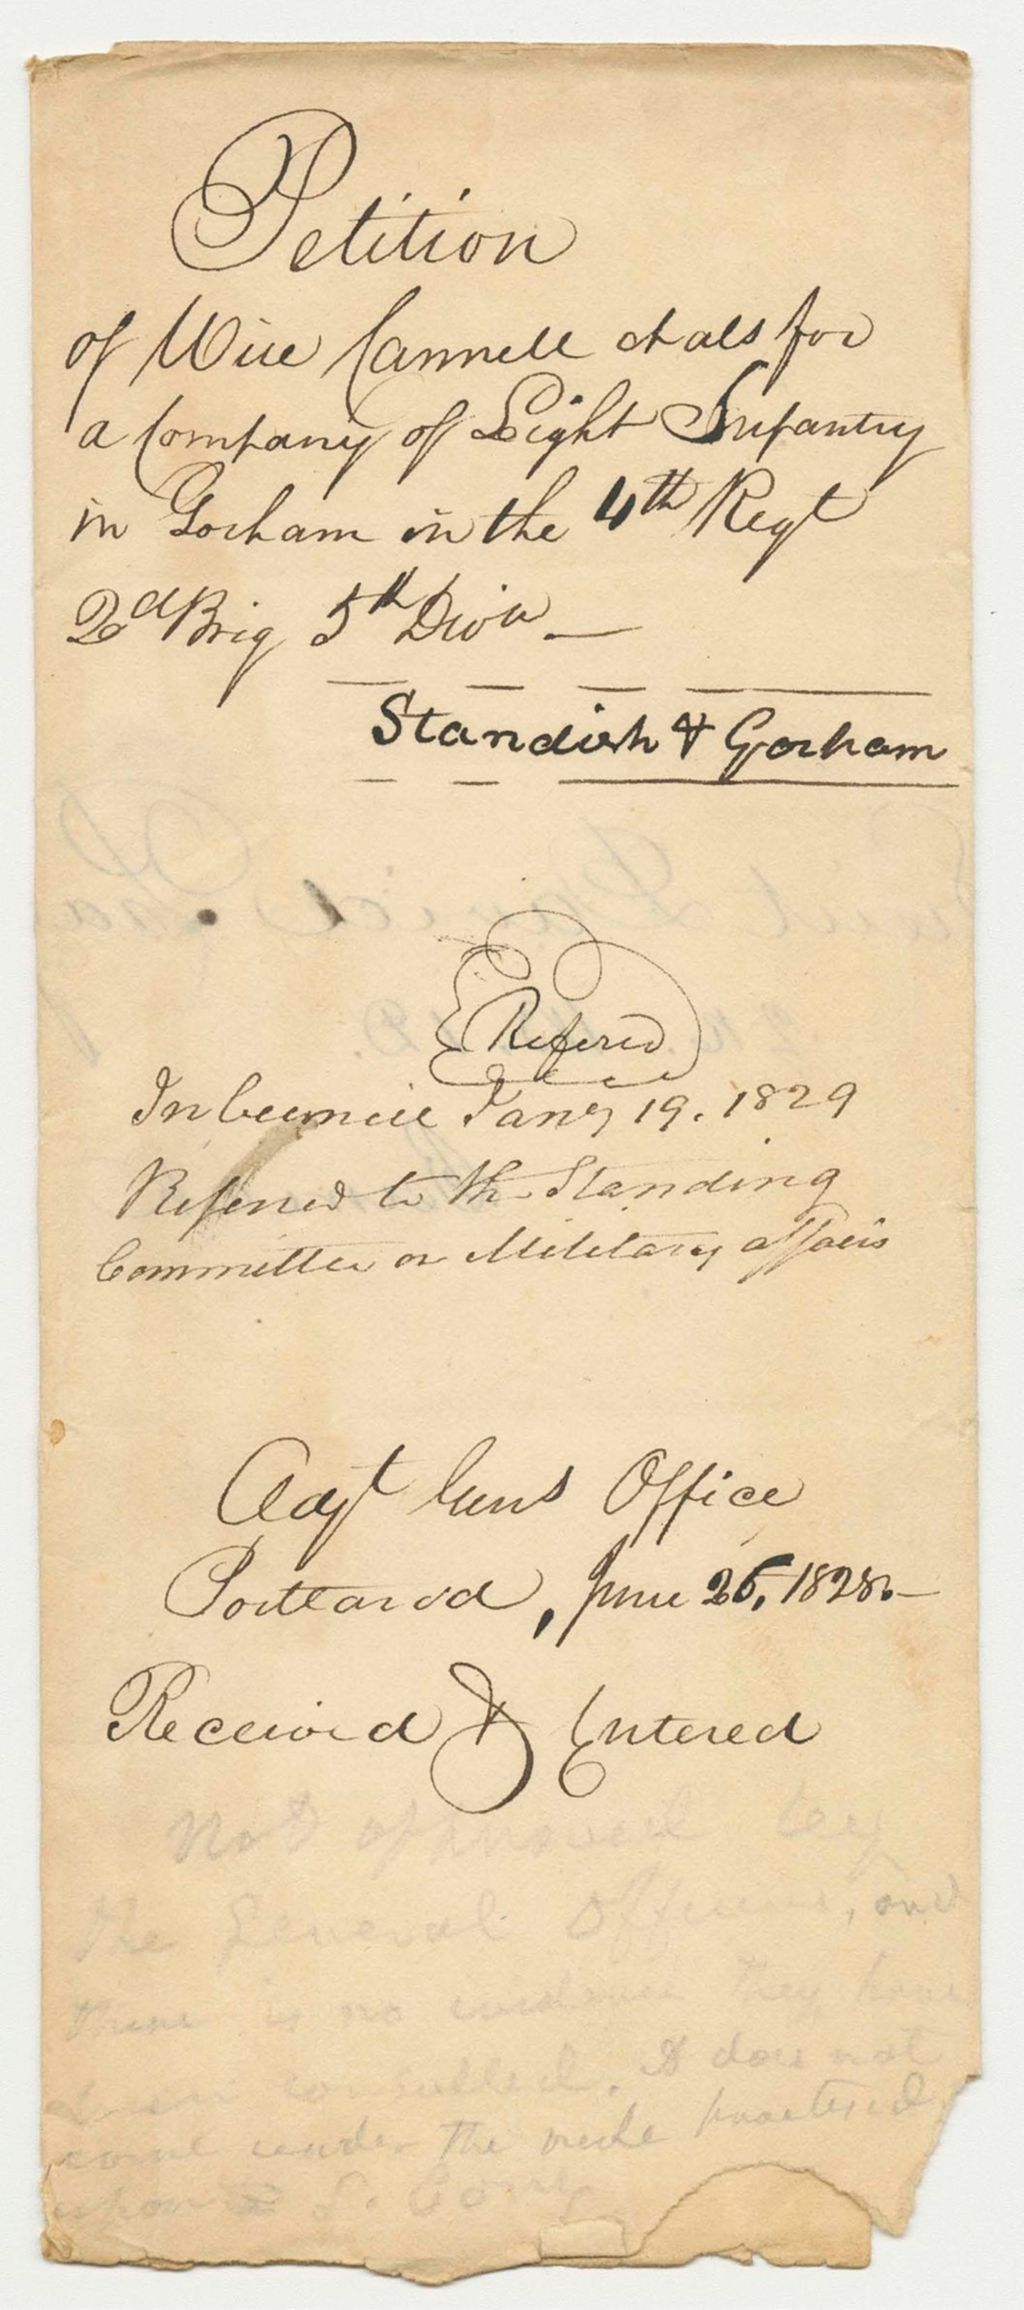 Petition
of Wise Cannell et als for
a Company of Light Infantry
in Gorham in the 4th Regt
2d Brig 5th Divn —
Standish & Gorham
Refered
In Council Jany 19. 1829
Referred to the Standing
Committee on Military affairs
Adjt Genls Office
Portland, June 26, 1828. —
Received & Entered
Not approved by
the General Officers, and
there is no evidence they have
been consulted. It does not
come under the rule practised
upon